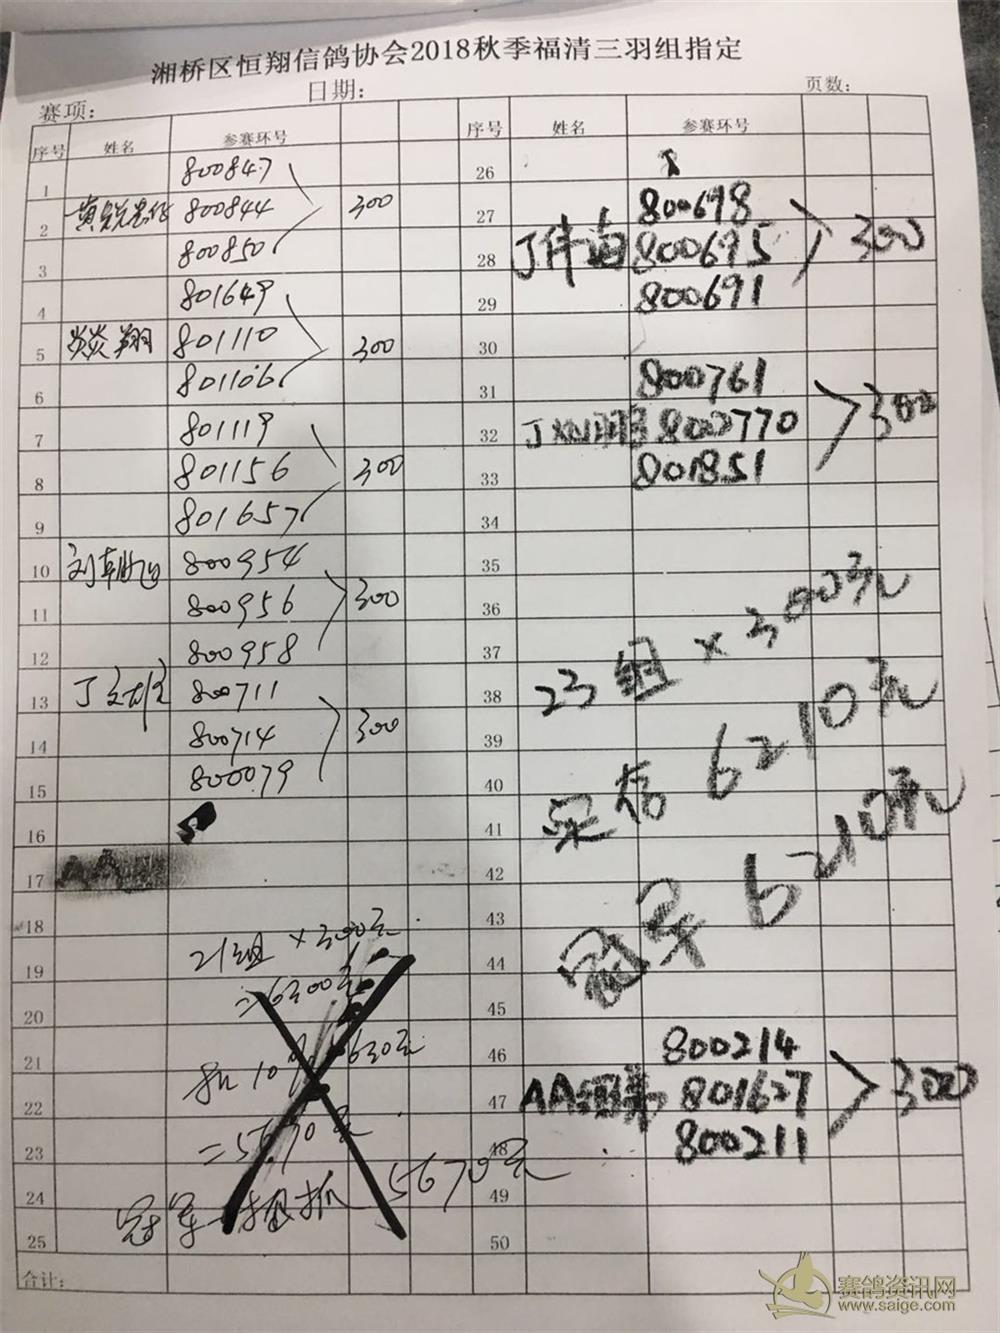 湘桥区恒翔信鸽协会2018秋季福清三羽组指定
赛项：
日期：
页数：
序号 姓名 参赛环号
1 800847
2 800844 300
3 800850
4 801649
5 焱翔 801110 300
6 801106
7 801119
8 801156 300
9 801657
10 刘 800954
11 800956 300
12 800958
13 丁 800711
14 800714 300
15 800079
16
17 AA
18
19 21组×300元
20 =6300元
21 扣10% 630元
22
23 =5670元
24 冠军 5670元
25
合计：
序号 姓名 参赛环号
26
27 800698
28 丁伟 800695 300
29 800691
30
31 800761
32 丁 8000770 300
33 801851
34
35
36
37
38 23组×300元
39
40
41 6210元
42
43
44 冠军 6210元
45
46 800214
47 AA 801627 300
48 800211
49
50
赛鸽资讯网
www.saige.com